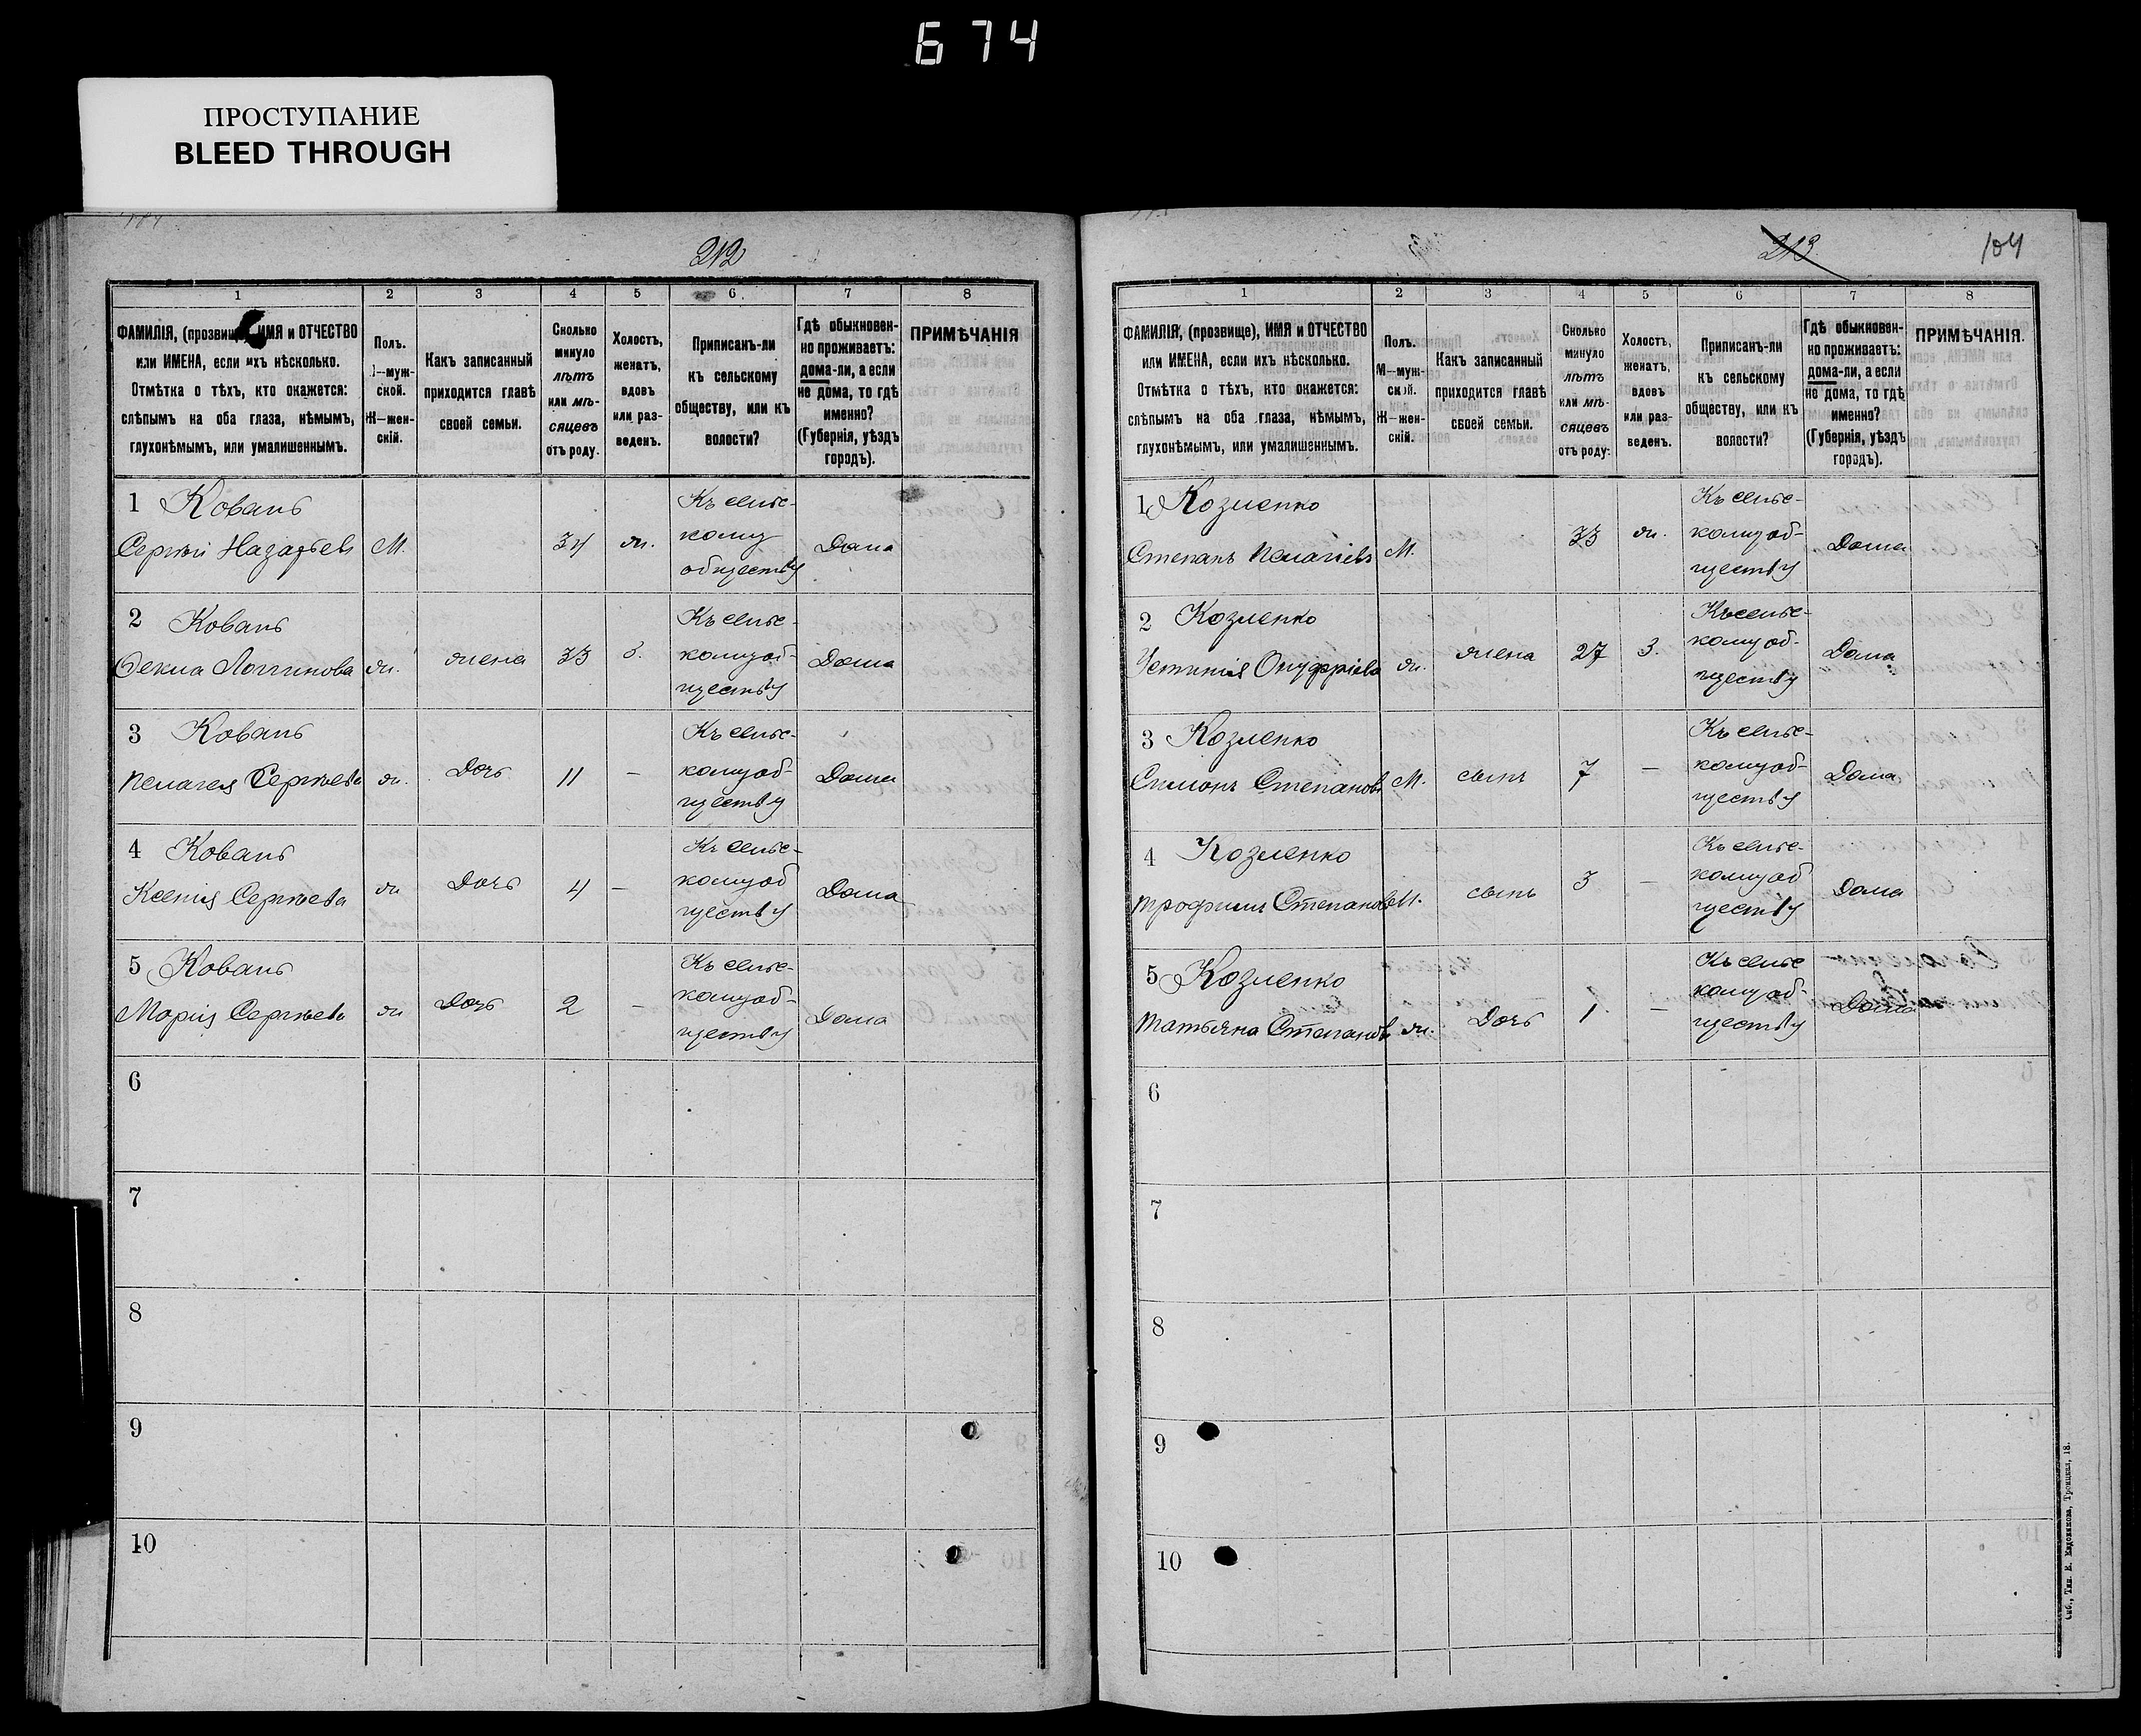 674
ПРОСТУПАНИЕ
BLEED THROUGH
212
1 2 3 4 5 6 7 8
ФАМИЛІЯ, (прозвище), ИМЯ и ОТЧЕСТВО
или ИМЕНА, если ихъ нѣсколько.
Отмѣтка о тѣхъ, кто окажется:
слѣпымъ на оба глаза, нѣмымъ,
глухонѣмымъ, или умалишеннымъ.
Полъ.
М—муж-
ской.
Ж—жен-
скій.
Какъ записанный
приходится главѣ
своей семьи.
Сколько
минуло
лѣтъ
или мѣ-
сяцевъ
отъ роду.
Холостъ,
женатъ,
вдовъ
или раз-
веденъ.
Приписанъ-ли
къ сельскому
обществу, или къ
волости?
Гдѣ обыкновен-
но проживаетъ:
дома-ли, а если
не дома, то гдѣ
именно?
(Губернія, уѣздъ
городъ).
ПРИМѢЧАНІЯ
1 Ковань Къ сельс-
Сергѣй Назарьевъ М. 34 ж. кому Дома
обществу
2 Ковань Къ сельс-
Фекла Логгинова ж. жена 33 з. кому об- Дома
ществу
3 Ковань Къ сельс-
Пелагея Сергѣева ж. Дочь 11 — кому об- Дома
ществу
4 Ковань Къ сельс-
Ксенія Сергѣева ж Дочь 4 — кому об Дома
ществу
5 Ковань Къ сельс-
Марія Сергѣева ж Дочь 2 — кому об- Дома
ществу
6
7
8
9
10
213 104
1 2 3 4 5 6 7 8
ФАМИЛІЯ, (прозвище), ИМЯ и ОТЧЕСТВО
или ИМЕНА, если ихъ нѣсколько.
Отмѣтка о тѣхъ, кто окажется:
слѣпымъ на оба глаза, нѣмымъ,
глухонѣмымъ, или умалишеннымъ.
Полъ.
М—муж-
ской.
Ж—жен-
скій.
Какъ записанный
приходится главѣ
своей семьи.
Сколько
минуло
лѣтъ
или мѣ-
сяцевъ
отъ роду.
Холостъ,
женатъ,
вдовъ
или раз-
веденъ.
Приписанъ-ли
къ сельскому
обществу, или къ
волости?
Гдѣ обыкновен-
но проживаетъ:
дома-ли, а если
не дома, то гдѣ
именно?
(Губернія, уѣздъ
городъ).
ПРИМѢЧАНІЯ.
1 Козленко Къ сельс-
Степанъ М. 33 ж. кому об- Дома
ществу
2 Козленко Къ сельс-
Устинія Онуфріева ж. жена 27 з. кому об- Дома
ществу
3 Козленко Къ сельс-
Симонъ Степановъ М. сынъ 7 — кому об- Дома
ществу
4 Козленко Къ сельс-
Трофимъ Степановъ М. сынъ 3 — кому об Дома
ществу
5 Козленко Къ сельс
Татьяна Степанов ж. Дочь 1 — кому об- Дома
ществу
6
7
8
9
10
Спб., Тип. Е. Евдокимова, Троицкая, 18.